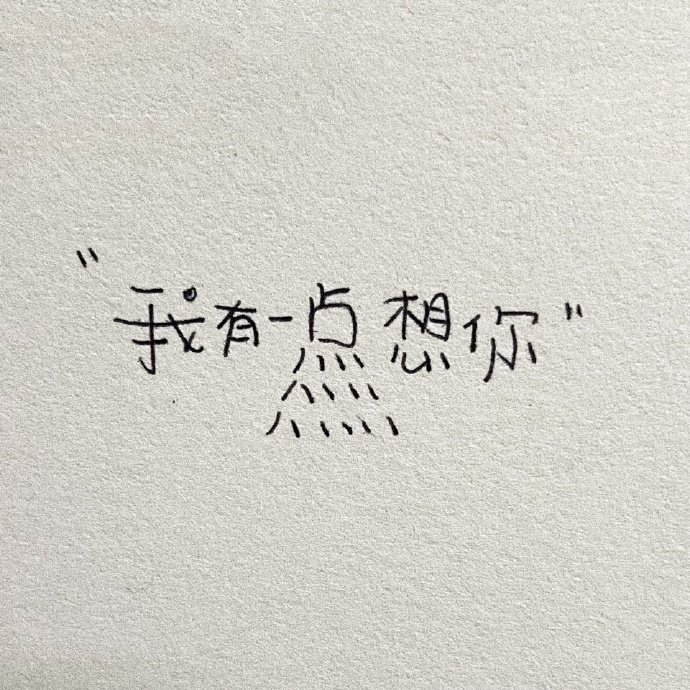 "我有一点想你"